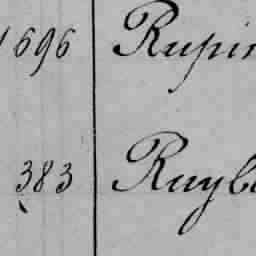 1696 Rupin
383 Ruyb